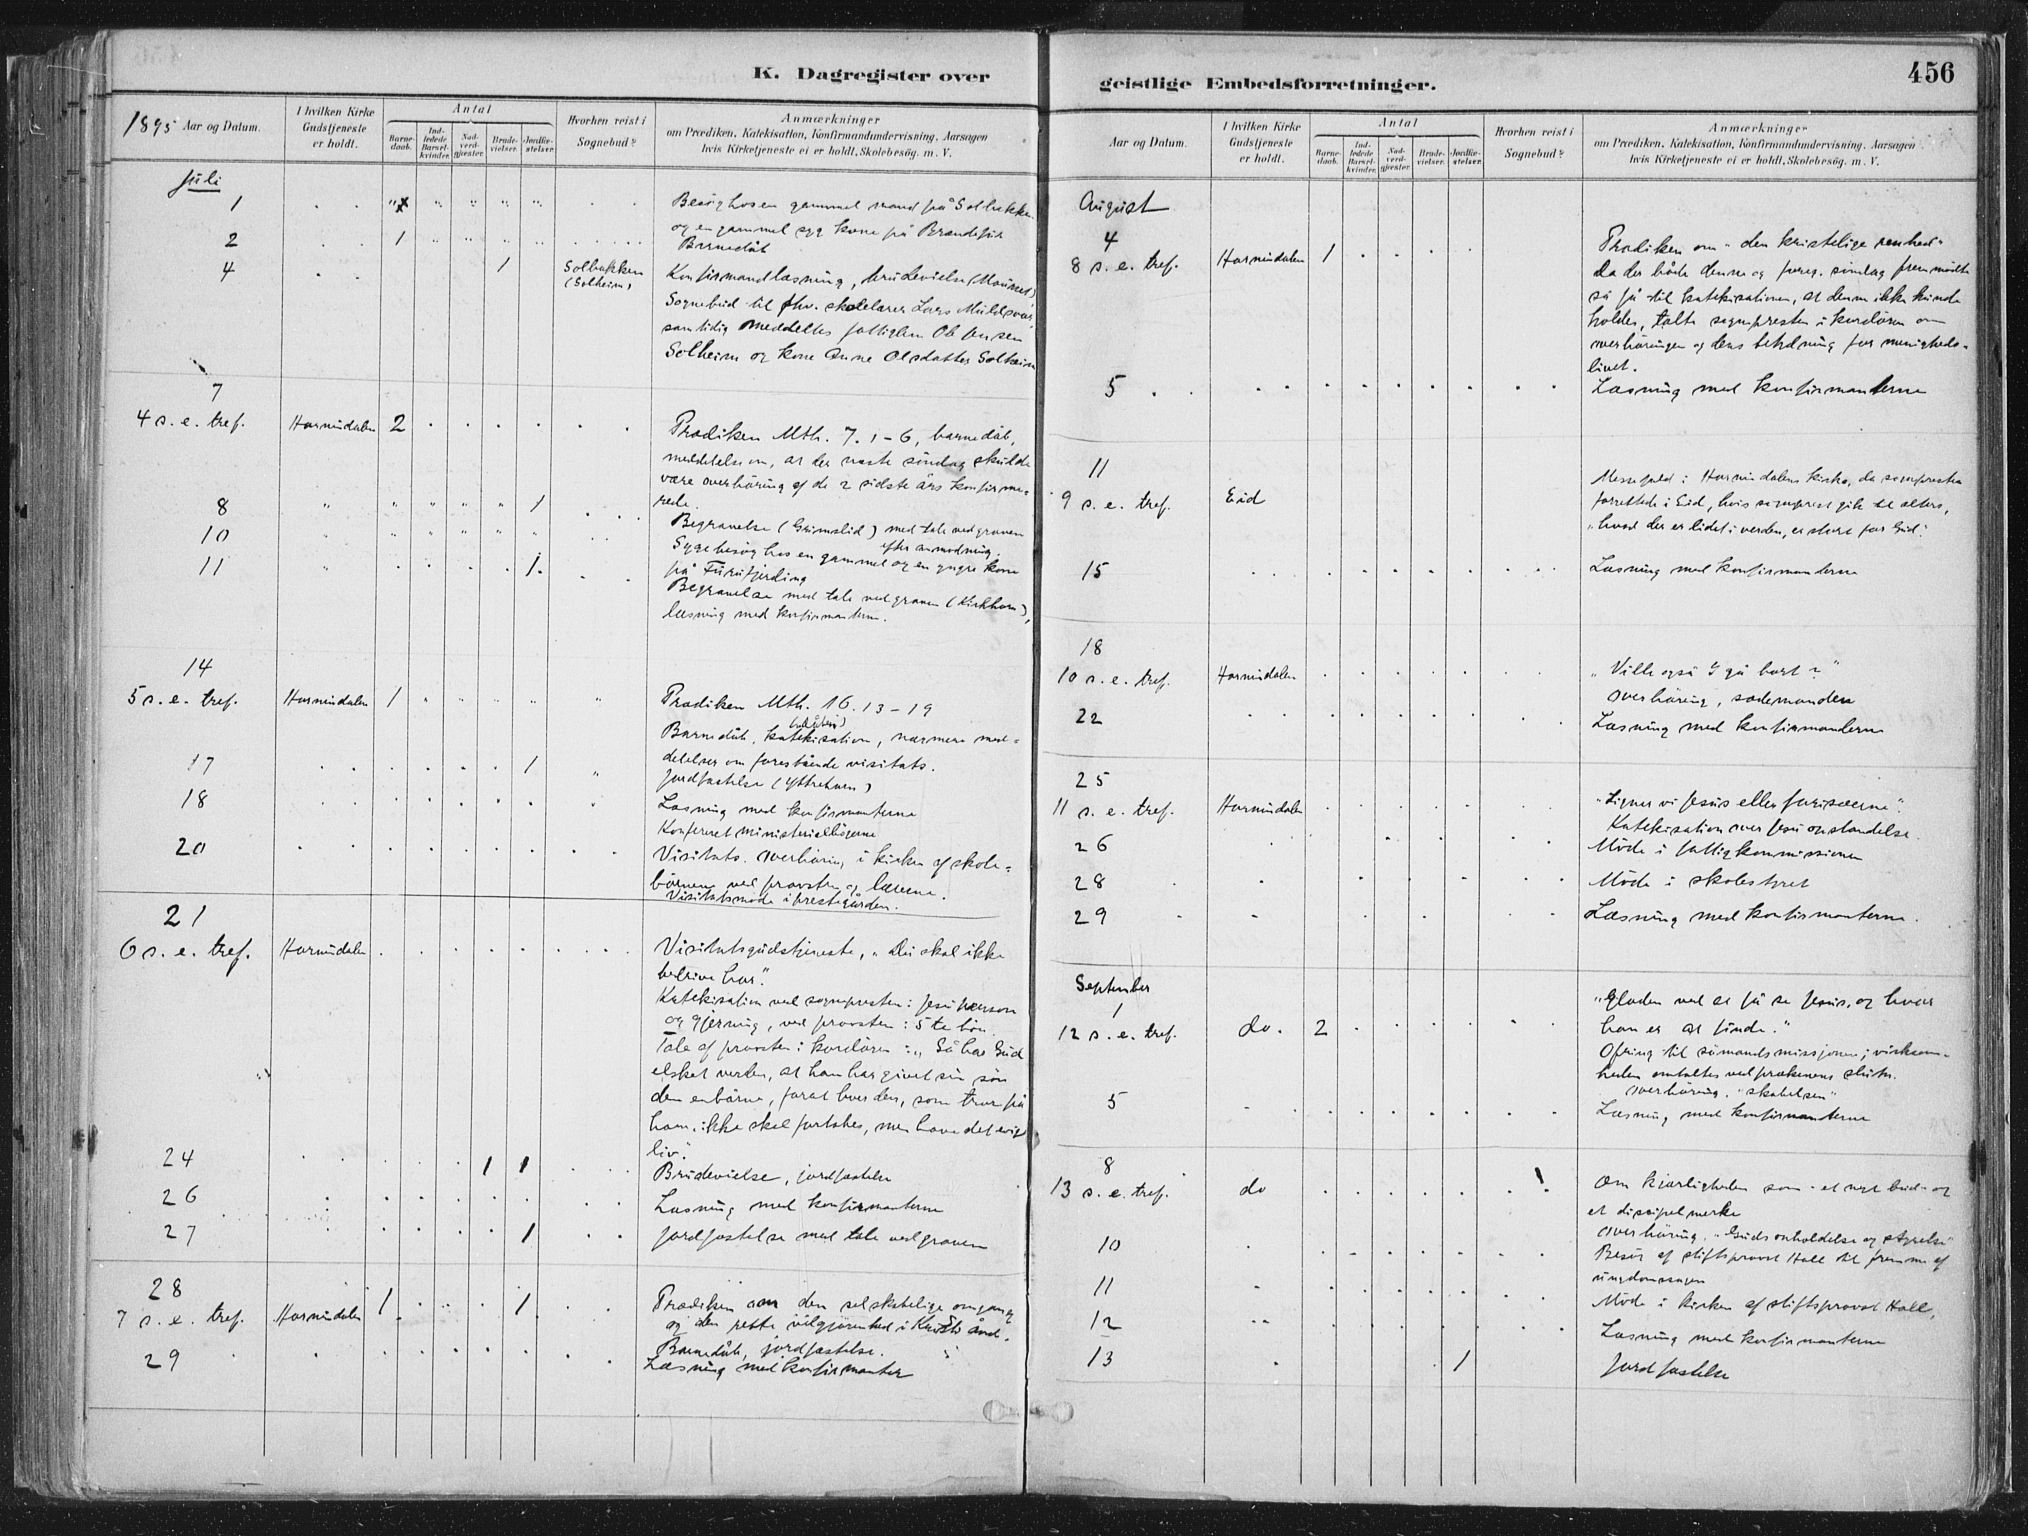 K. Dagregister over
1895 Aar og Datum.
I hvilken Kirke Gudstjeneste er holdt.
Antal
Barne-daab.
Ind-ledede Barsel-kvinder.
Nad-verd-gjester.
Brude-vielser.
Jordfæ-stelser.
Hvorhen reist i Sognebud?
Anmærkninger
om Prædiken, Katekisation, Konfirmandundervisning, Aarsagen
hvis Kirketjeneste ei er holdt, Skolebesøg. m. V.
Juli
1 Besög hos en gammel mand på Solbakken
og en gammel syg kone på
2 1 Barnedåb
4 1 Solbakken (Solheim) Konfirmandlæsning, brudevielse
Sognebud til fhv. skolelærer Lars
samtidig meddeltes fattiglem Ole Jensen
Solheim og kone Anne Olsdatter Solheim
7
4 s. e. tref. Hornindalen 2 Prædiken Mth. 7. 1-6, barnedåb,
meddelelse om, at der næste söndag skulde
være overhöring af de 2 sidste års konfirme-
rede.
8 1 Begravelse (Grimslid) med tale ved graven
efter anmodning.
10 Sygebesög hos en gammel og en yngre kone
på
11 1. Begravelse med tale ved graven (Kirkhorn),
læsning med konfirmanterne.
14
5 s. e. tref. Hornindalen 1 Prædiken Mth. 16. 13-19
Barnedåb, katekisation, nærmere med-
delelser om forestående visitats.
17 1 Jordfæstelse (Ytrehorn)
18 Læsning med konfirmanterne
Konfereret ministerialbögerne
20 Visitats. Overhöring i kirken af skole-
börnene ved provsten og lærerne.
Visitatsmöde i prestegården.
21
6 s. e. tref. Hornindalen Visitatsgudstjeneste, "Du skal ikke
bedrive hor".
Katekisation ved sognepresten: Jesu person
og gjerning, ved provsten: 5te bön.
Tale af provsten i kordören: "Så har Gud
elsket verden, at han har givet sin sön
den enbårne, forat hver den, som tror på
ham, ikke skal fortabes, men have det evige
liv".
24 1 1 Brudevielse, jordfæstelse
26 Læsning med konfirmanterne
27 1 Jordfæstelse med tale ved graven
28
7 s. e. tref. Hornindalen 1 1 Prædiken om den selskabelige omgang
og den rette velgjörenhed i Kristi ånd.
Barnedåb, jordfæstelse.
29 Læsning med konfirmanter
geistlige Embedsforretninger.
456
Aar og Datum.
I hvilken Kirke Gudstjeneste er holdt.
Antal
Barne-daab.
Ind-ledede Barsel-kvinder.
Nad-verd-gjester.
Brude-vielser.
Jordfæ-stelser.
Hvorhen reist i Sognebud?
Anmærkninger
om Prædiken, Katekisation, Konfirmandundervisning, Aarsagen
hvis Kirketjeneste ei er holdt, Skolebesøg. m. V.
August
4
8 s. e. tref. Hornindalen 1 Prædiken om "den kristelige renhed"
Da der både denne og foreg. söndag fremmödte
så få til katekisationen, at denne ikke kunde
holdes, talte sognepresten i kordören om
overhöringen og dens betydning for menigheds-
livet.
5 Læsning med konfirmanterne
11
9 s. e. tref. Eid Messefald i Hornindalens kirke, da sognepresten
forrettede i Eid, hvis sogneprest gik til alters,
"hvad der er lidet i verden, er stort for Gud".
15 Læsning med konfirmanderne
18
10 s. e. tref. Hornindalen "Ville også I gå bort?"
overhöring, sædemanden
22 Læsning med konfirmanderne
25
11 s. e. tref. Hornindalen "Ligner vi Jesus eller farisæerne".
Katekisation over Jesu opstandelse.
26 Möde i fattigkommissionen
28 Möde i skolestyret
29 Læsning med konfirmanterne.
September
1
12 s. e. tref. do. 2 "Glæden ved at få se Jesus, og hvor
han er at finde."
Ofring til sömandsmissjonen; virksom-
heden omtaltes ved prækenens slutn.
overhöring, "skabelsen"
5 Læsning med konfirmanterne
8
13 s. e. tref. do Om kjærligheden som et nyt bud og
et discipelmerke
overhöring. "Guds opholdelse og styrelse"
10 Besög af stiftsprovst Hall til fremme af
ungdomssagen
11 Möde i kirken af stiftsprovst Hall,
12 Læsning med konfirmanterne
13 1 Jordfæstelse